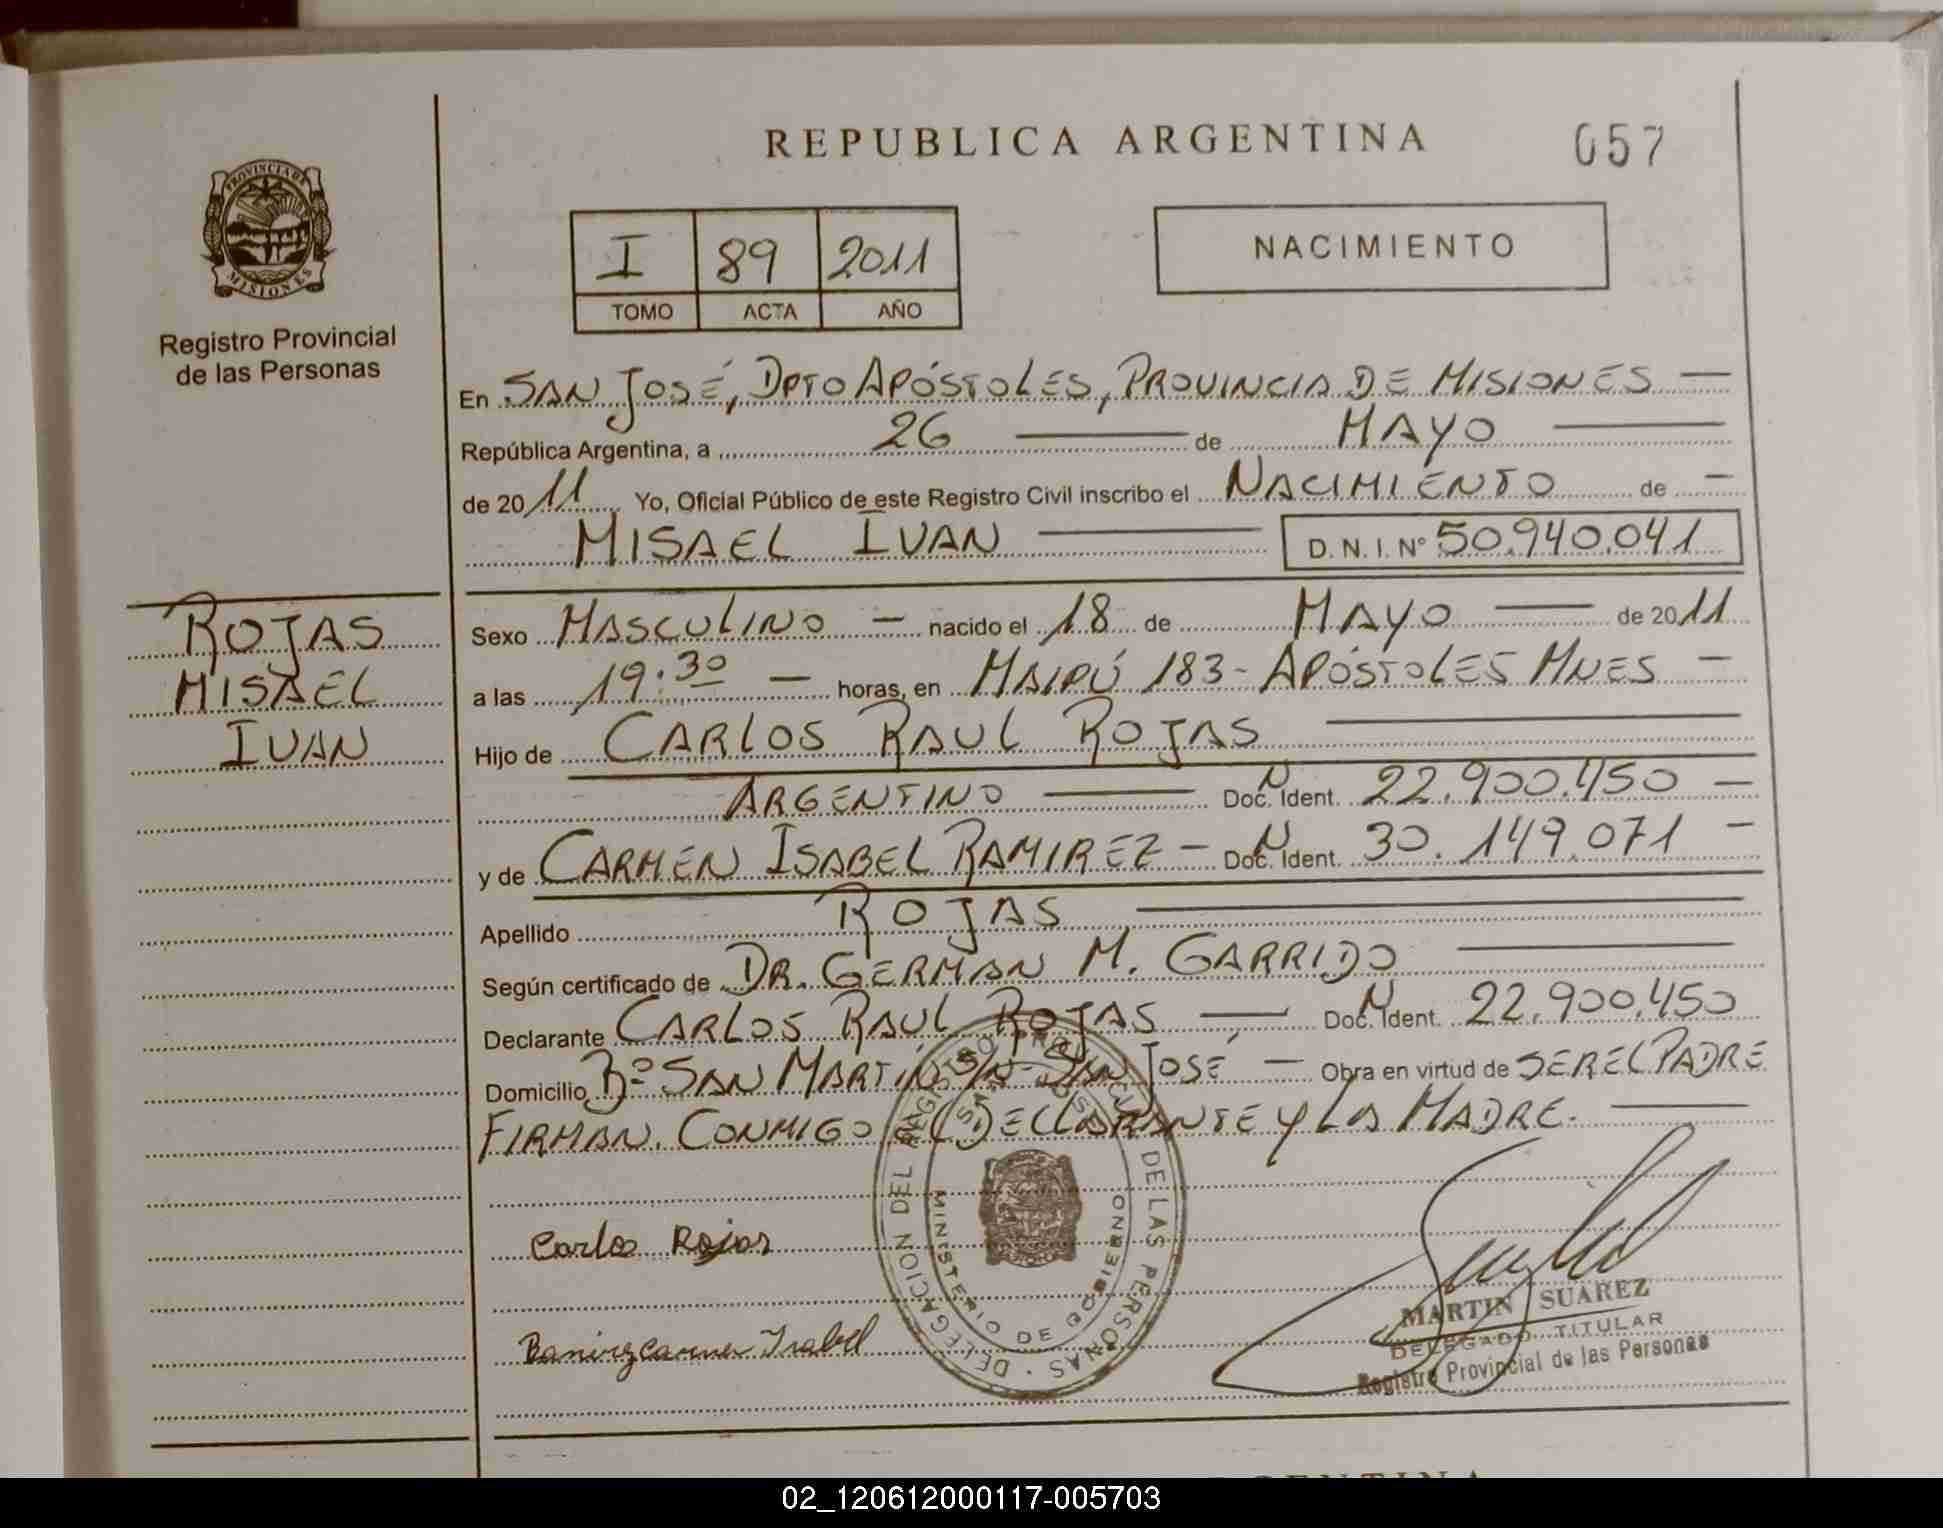 REPUBLICA ARGENTINA
057
PROVINCIA DE
MISIONES
Registro Provincial
de las Personas
I 89 2011
TOMO ACTA AÑO
NACIMIENTO
En SAN JOSÉ, DPTO APÓSTOLES, PROVINCIA DE MISIONES —
República Argentina, a 26 — de MAYO —
de 2011 Yo, Oficial Público de este Registro Civil inscribo el NACIMIENTO de —
MISAEL IVAN — D.N.I. Nº 50.940.041
ROJAS
MISAEL
IVAN
Sexo MASCULINO — nacido el 18 de MAYO — de 2011
a las 19:30 — horas, en MAIPÚ 183 - APÓSTOLES MNES —
Hijo de CARLOS RAUL ROJAS —
ARGENTINO — Doc. Ident. N 22.900.450 —
y de CARMEN ISABEL RAMIREZ — Doc. Ident. N 30.149.071 —
Apellido ROJAS —
Según certificado de DR. GERMAN M. GARRIDO —
Declarante CARLOS RAUL ROJAS — Doc. Ident. N 22.900.450
Domicilio Bº SAN MARTIN S/N - SAN JOSÉ — Obra en virtud de SER EL PADRE
FIRMAN CONMIGO EL DECLARANTE Y LA MADRE. —
DELEGACION DEL REGISTRO PROVINCIAL DE LAS PERSONAS
SAN JOSE
MINISTERIO DE GOBIERNO
Carlos Rojas
Ramirez Carmen Isabel
MARTIN SUAREZ
DELEGADO TITULAR
Registro Provincial de las Personas
02_120612000117-005703